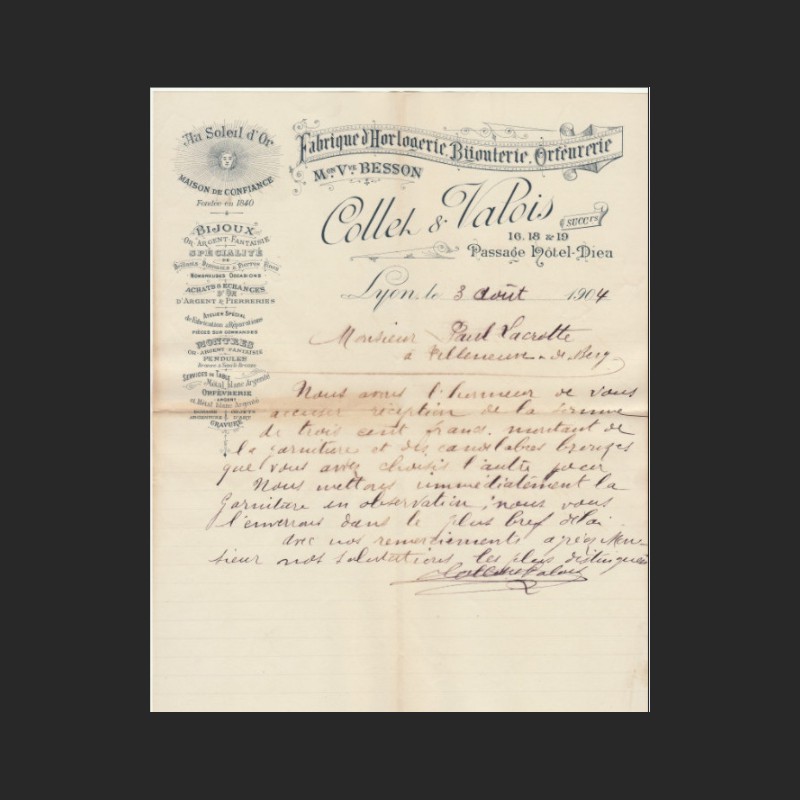 Au Soleil d'Or
MAISON DE CONFIANCE
Fondée en 1840
BIJOUX
OR - ARGENT - FANTAISIE
SPÉCIALITÉ
DE
Brillants, Diamants & Pierres Fines
NOMBREUSES OCCASIONS
ACHATS & ÉCHANGES
D'OR
D'ARGENT & PIERRERIES
ATELIER SPÉCIAL
de Fabrication & Réparations
PIÈCES SUR COMMANDES
MONTRES
OR - ARGENT - FANTAISIE
PENDULES
SERVICES DE TABLE
Métal blanc Argenté
ORFÈVRERIE
ARGENT
et Métal blanc Argenté
GRAVURE
Fabrique d'Horlogerie, Bijouterie, Orfèvrerie
MON VVE BESSON
Collet & Valois
SUCCRS
16, 18 & 19
Passage Hôtel-Dieu
Lyon, le 3 août 1904
Monsieur Paul Lacrotte
à Villeneuve de Berg
Nous avons l'honneur de vous
accuser réception de la somme
de trois cent francs, montant de
la garniture et des candelabres bronzes
que vous avez choisis l'autre jour
Nous mettons immédiatement la
garniture en observation ; nous vous
l'enverrons dans le plus bref délai
avec nos remerciements agréez Mon-
sieur nos salutations les plus distinguées
Collet & Valois